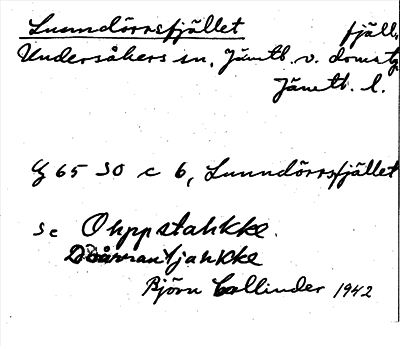 Lunndörrsfjället fjäll,
Undersåkers sn, Jämtl. v. domsg
Jämtl. l.
65 SO c 6, Lunndörrsfjället
Se Ohppstahkke.
Björn Collinder 1942